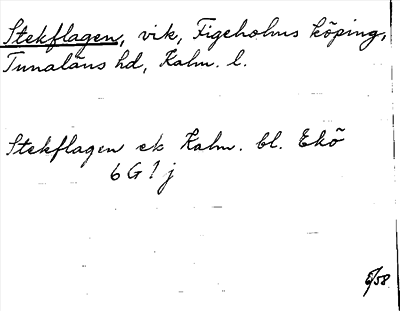 Stekflagen, vik, Figeholms köping,
Tunaläns hd, Kalm. l.
Stekflagen ek Kalm. bl. Ekö
6 G 1 j
6/58